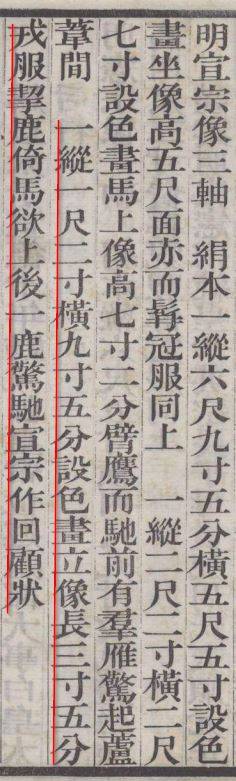 明宣宗像三軸　絹本一縱六尺九寸五分橫五尺五寸設色
畫坐像高五尺面赤而髯冠服同上　一縱二尺二寸橫二尺
七寸設色畫馬上像高七寸二分臂鷹而馳前有羣雁驚起蘆
葦間　一縱一尺二寸橫九寸五分設色畫立像長三寸五分
戎服挈鹿倚馬欲上後一鹿驚馳宣宗作回顧狀